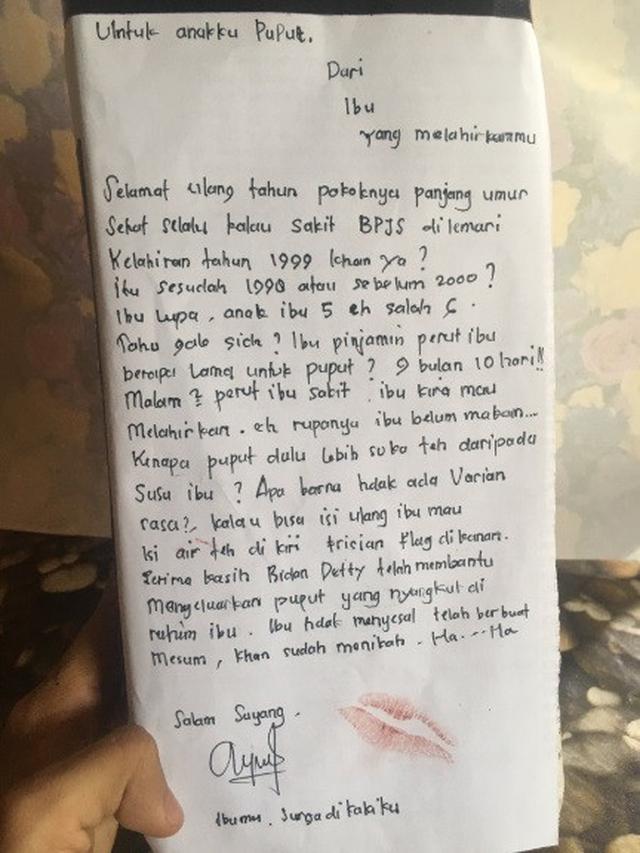 Untuk anakku Puput.
Dari
Ibu
yang melahirkanmu
Selamat ulang tahun pokoknya panjang umur
Sehat selalu kalau sakit BPJS dilemari
Kelahiran tahun 1999 khan ya?
itu sesudah 1990 atau sebelum 2000?
Ibu lupa, anak ibu 5 eh salah 6.
Tahu gak sich? Ibu pinjamin perut ibu
berapa lama untuk puput? 9 bulan 10 hari!!
Malam2 perut ibu sakit ibu kira mau
Melahirkan. eh rupanya ibu belum makan...
Kenapa puput dulu lebih suka teh daripada
Susu ibu? Apa karna tidak ada Varian
rasa?, kalau bisa isi ulang ibu mau
Isi air teh di kiri frisian flag dikanan.
Terima kasih Bidan Detty telah membantu
Mengeluarkan puput yang nyangkut di
rahim ibu. Ibu tidak menyesal telah berbuat
Mesum, khan sudah menikah. Ha...Ha
Salam Sayang.
Ibumu. Surga dikakiku